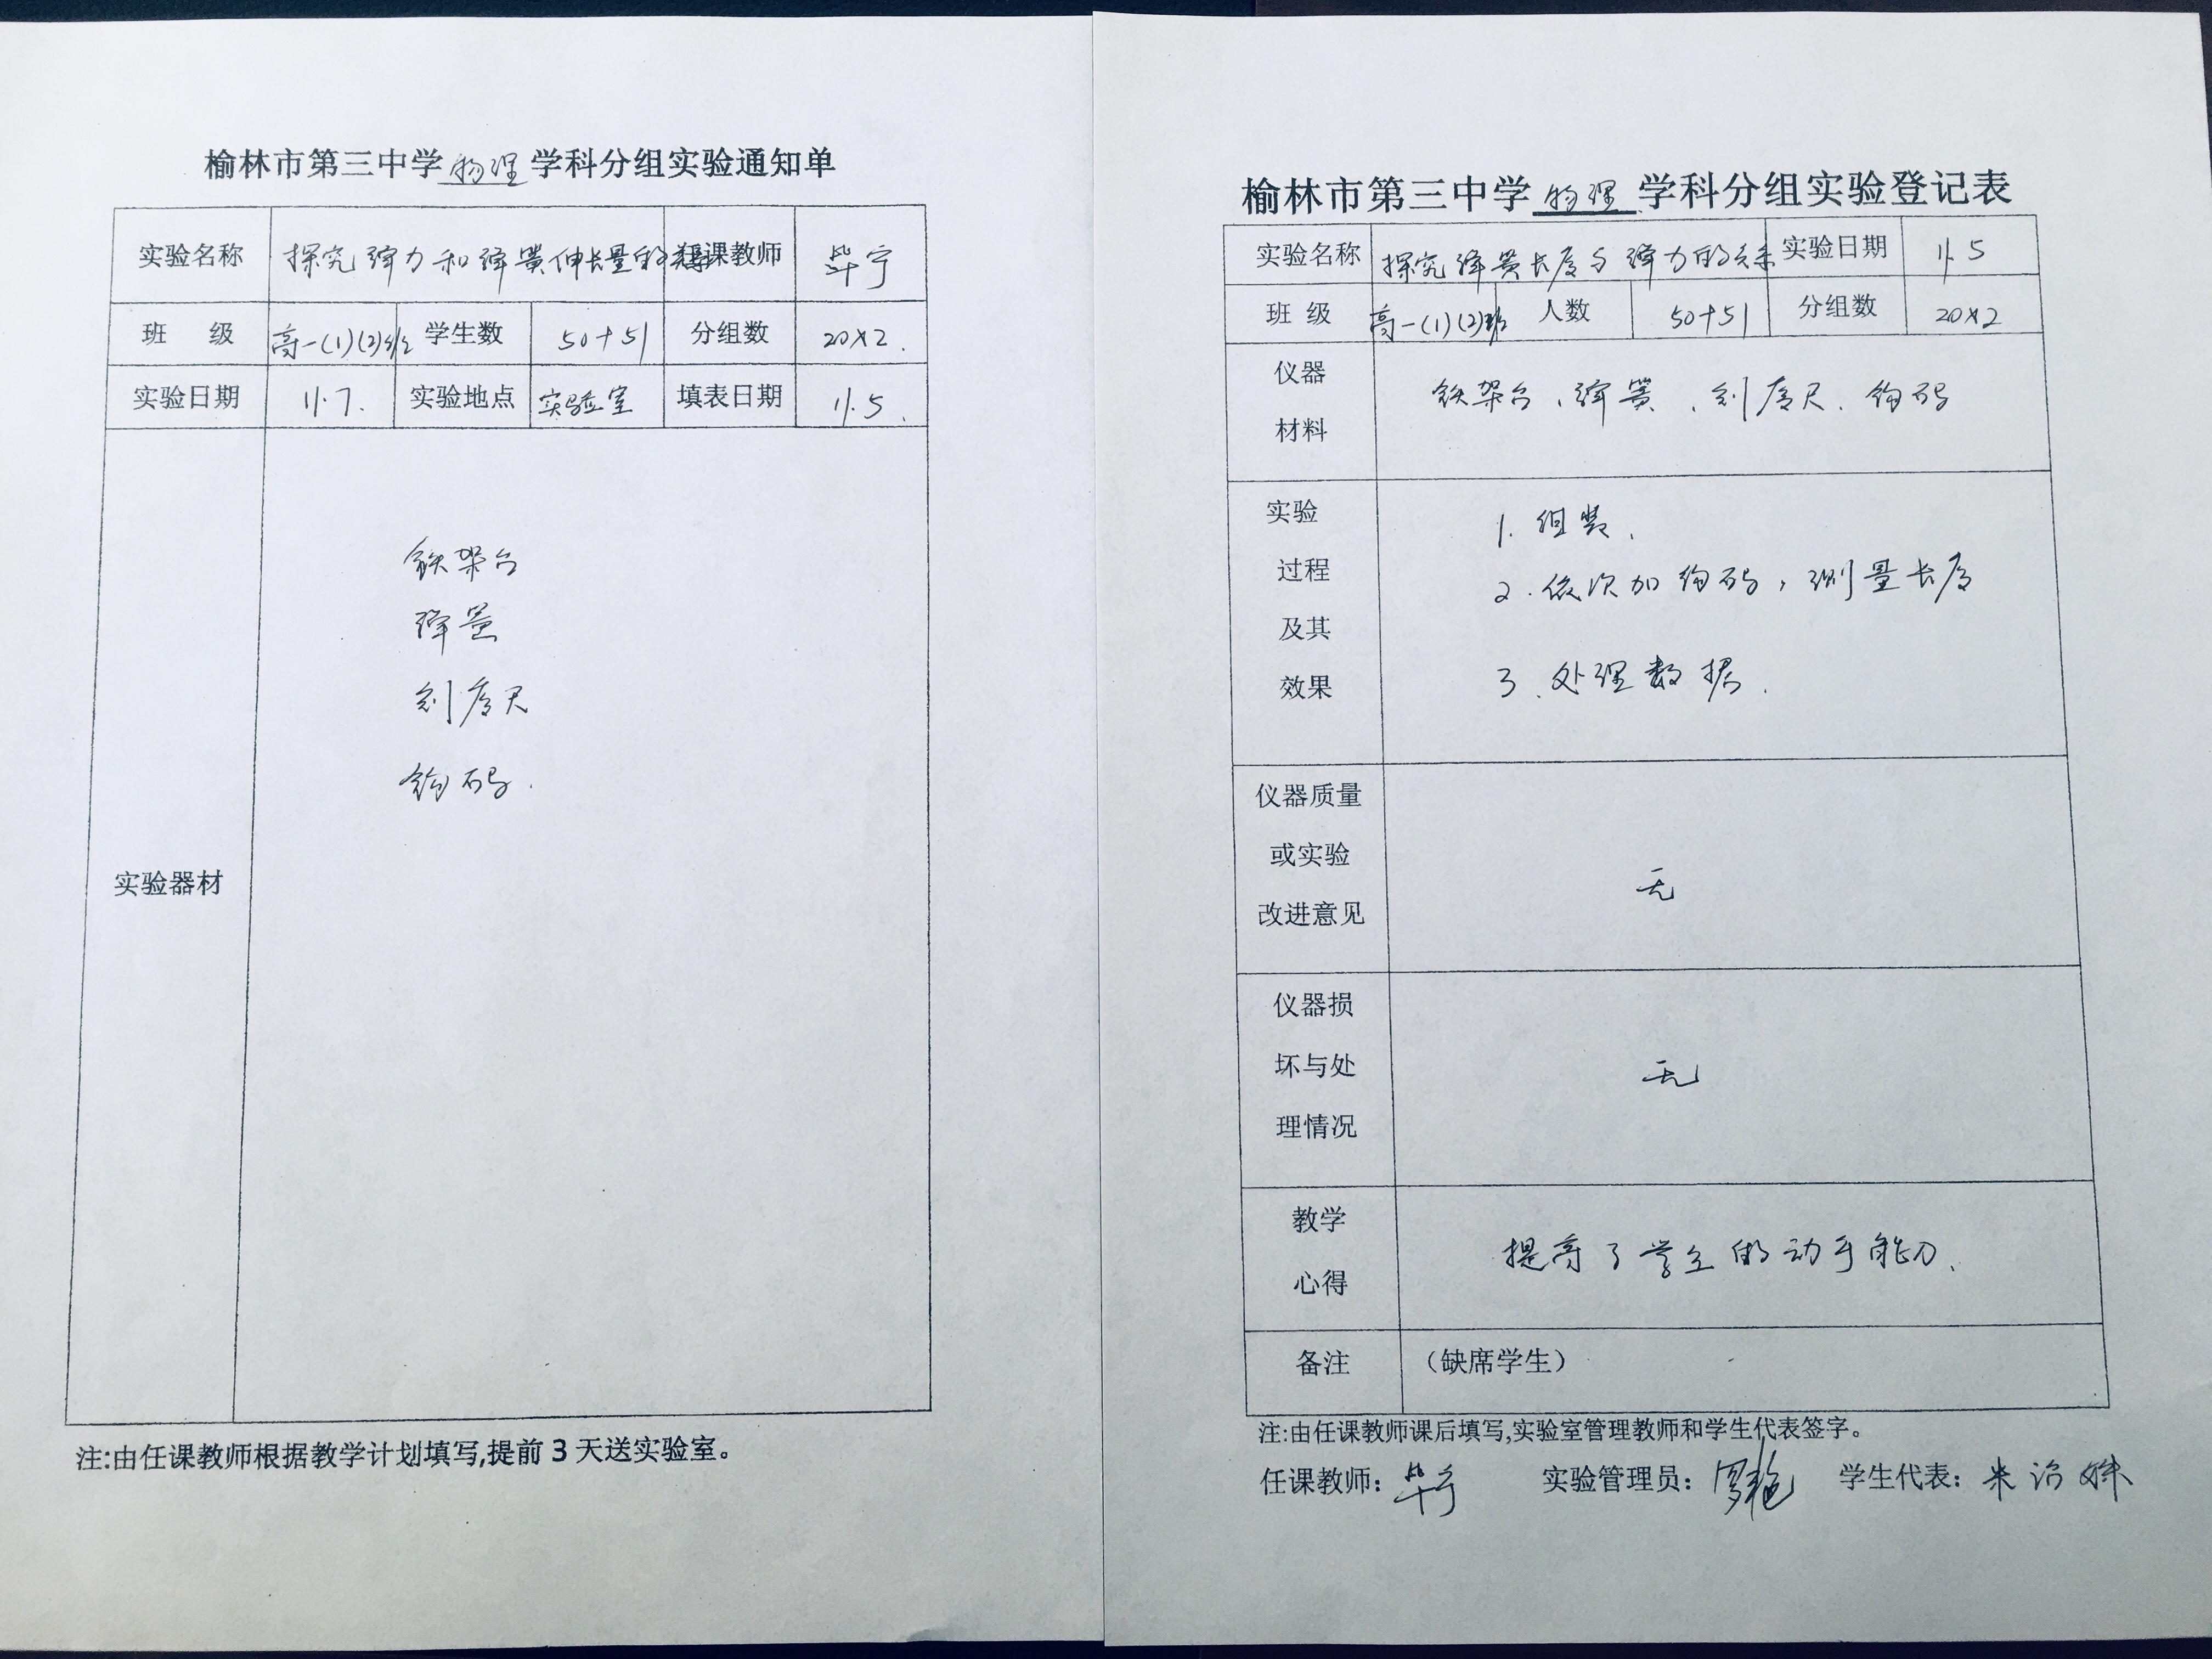 榆林市第三中学物理学科分组实验通知单
实验名称 探究弹力和弹簧伸长量的关系 任课教师 毕宁
班 级 高一(1)(2)班 学生数 50+51 分组数 20×2.
实验日期 11.7. 实验地点 实验室 填表日期 11.5.
实验器材
铁架台
弹簧
刻度尺
钩码.
注:由任课教师根据教学计划填写,提前3天送实验室。
榆林市第三中学物理学科分组实验登记表
实验名称 探究弹簧长度与弹力的关系 实验日期 11.5
班 级 高一(1)(2)班 人数 50+51 分组数 20×2
仪器
材料
铁架台、弹簧、刻度尺、钩码
实验
过程
及其
效果
1.组装、
2.依次加钩码,测量长度
3、处理数据.
仪器质量
或实验
改进意见
无
仪器损
坏与处
理情况
无
教学
心得
提高了学生的动手能力、
备注 (缺席学生)
注:由任课教师课后填写,实验室管理教师和学生代表签字。
任课教师: 毕宁 实验管理员: 学生代表: